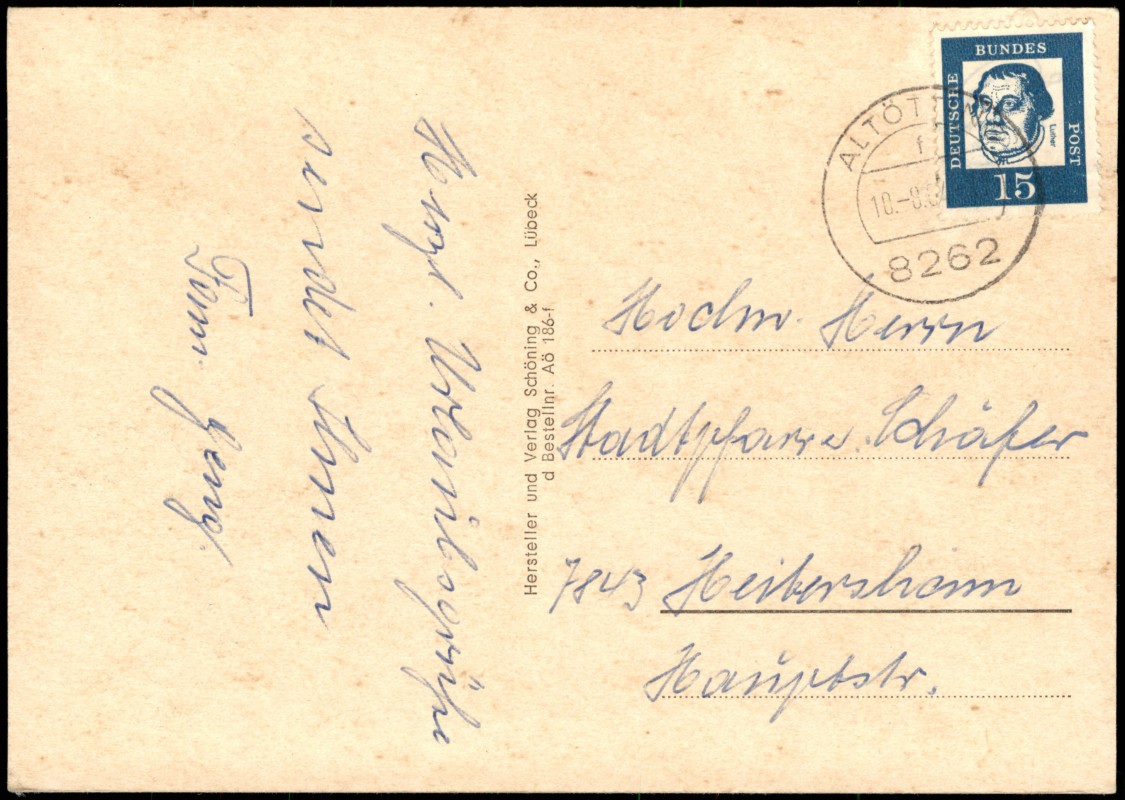 Herzl. Urlaubsgrüße
sendet Ihnen
Fam.
Hersteller und Verlag Schöning & Co., Lübeck
d Bestellnr. AÖ 186-f
DEUTSCHE BUNDES POST
Luther
15
ALTÖTTING
f
10.-8.6
8262
Hochw. Herrn
Stadtpfarrer Schäfer
7843 Heitersheim
Hauptstr.